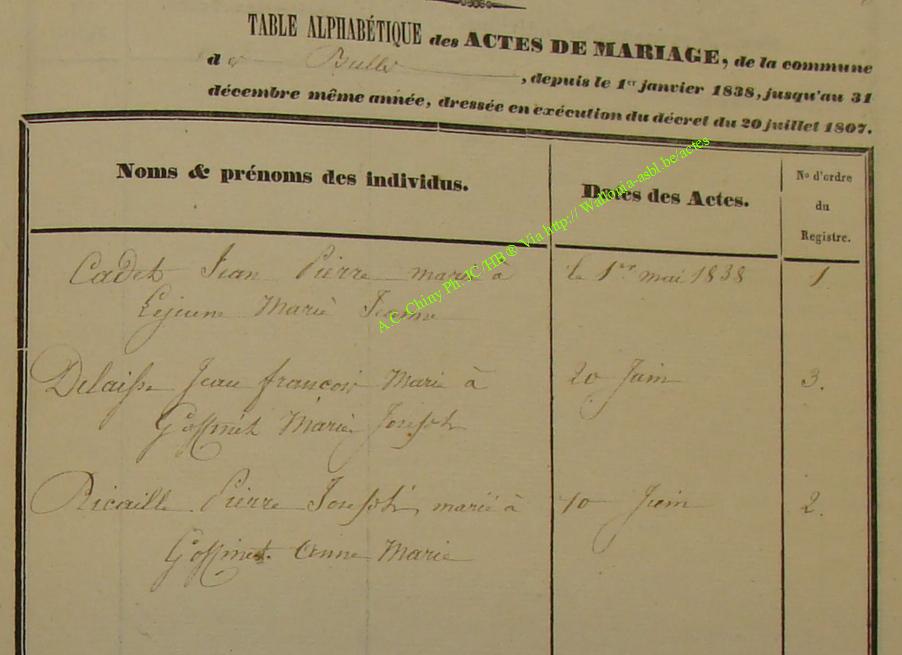 TABLE ALPHABÉTIQUE des ACTES DE MARIAGE, de la commune
de Bulle, depuis le 1er janvier 1838, jusqu'au 31
décembre même année, dressée en exécution du décret du 20 juillet 1807.
Noms & prénoms des individus. Dates des Actes. No d'ordre du Registre.
Cadet Jean Pierre marié à le 1er mai 1838 1
Lejeune Marie Jeanne
Delaisse Jean françois Marié à 20 Juin 3.
Goffinet Marie Joseph
Ricaille Pierre Joseph, marié à 10 Juin 2.
Goffinet Anne Marie
A.C. Chiny Ph. JC /HB ® Via http:// Wallonia-asbl.be/actes